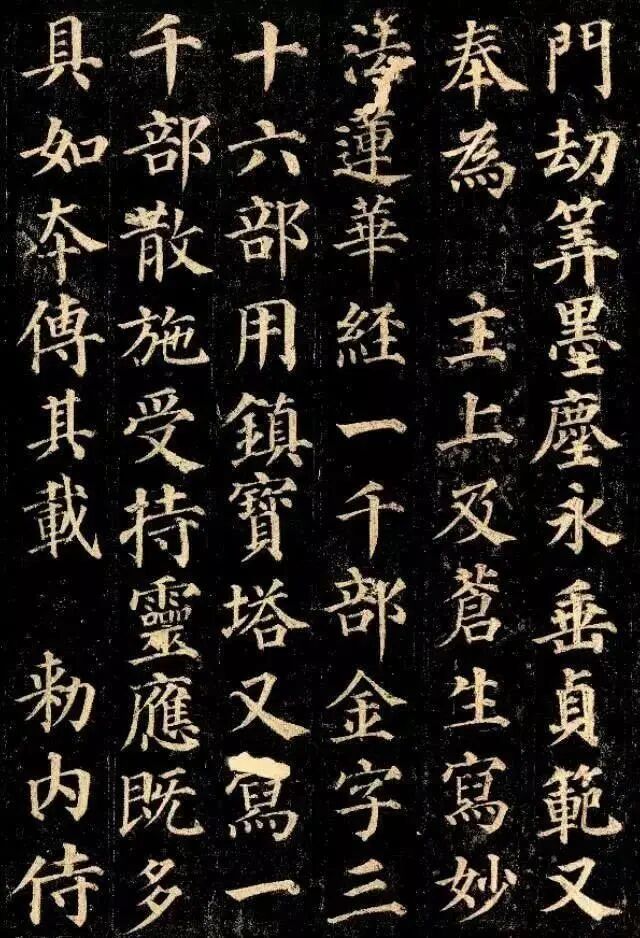 門劫筭墨塵永垂貞範又
奉為　主上及蒼生寫妙
法蓮華經一千部金字三
十六部用鎮寶塔又寫一
千部散施受持靈應既多
具如本傳其載　勅内侍